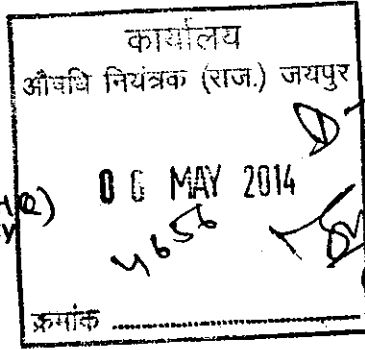 कार्यालय
औषधि नियंत्रक (राज.) जयपुर
06 MAY 2014
4656
क्रमांक ....................